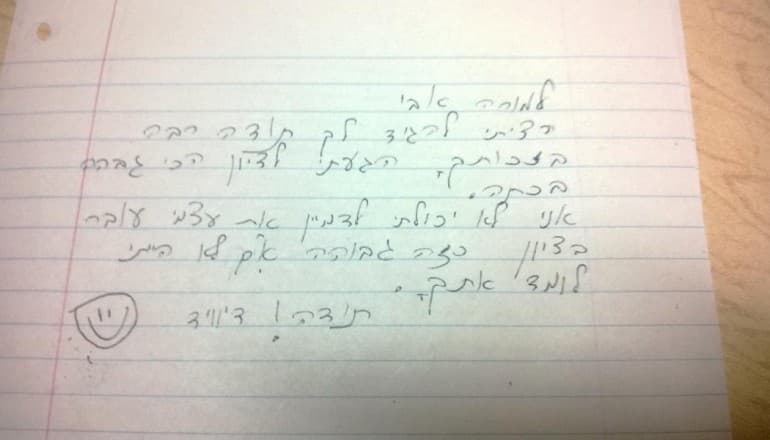 למורה אבי
רציתי להגיד לך תודה רבה
בזכותך, הגעתי לציון הכי גבוהה
בכתה.
אני לא יכולתי לדמיין את עצמי עובר
בציון כזה גבוהה אם לא הייתי
לומד אתך.
תודה! דיוויד